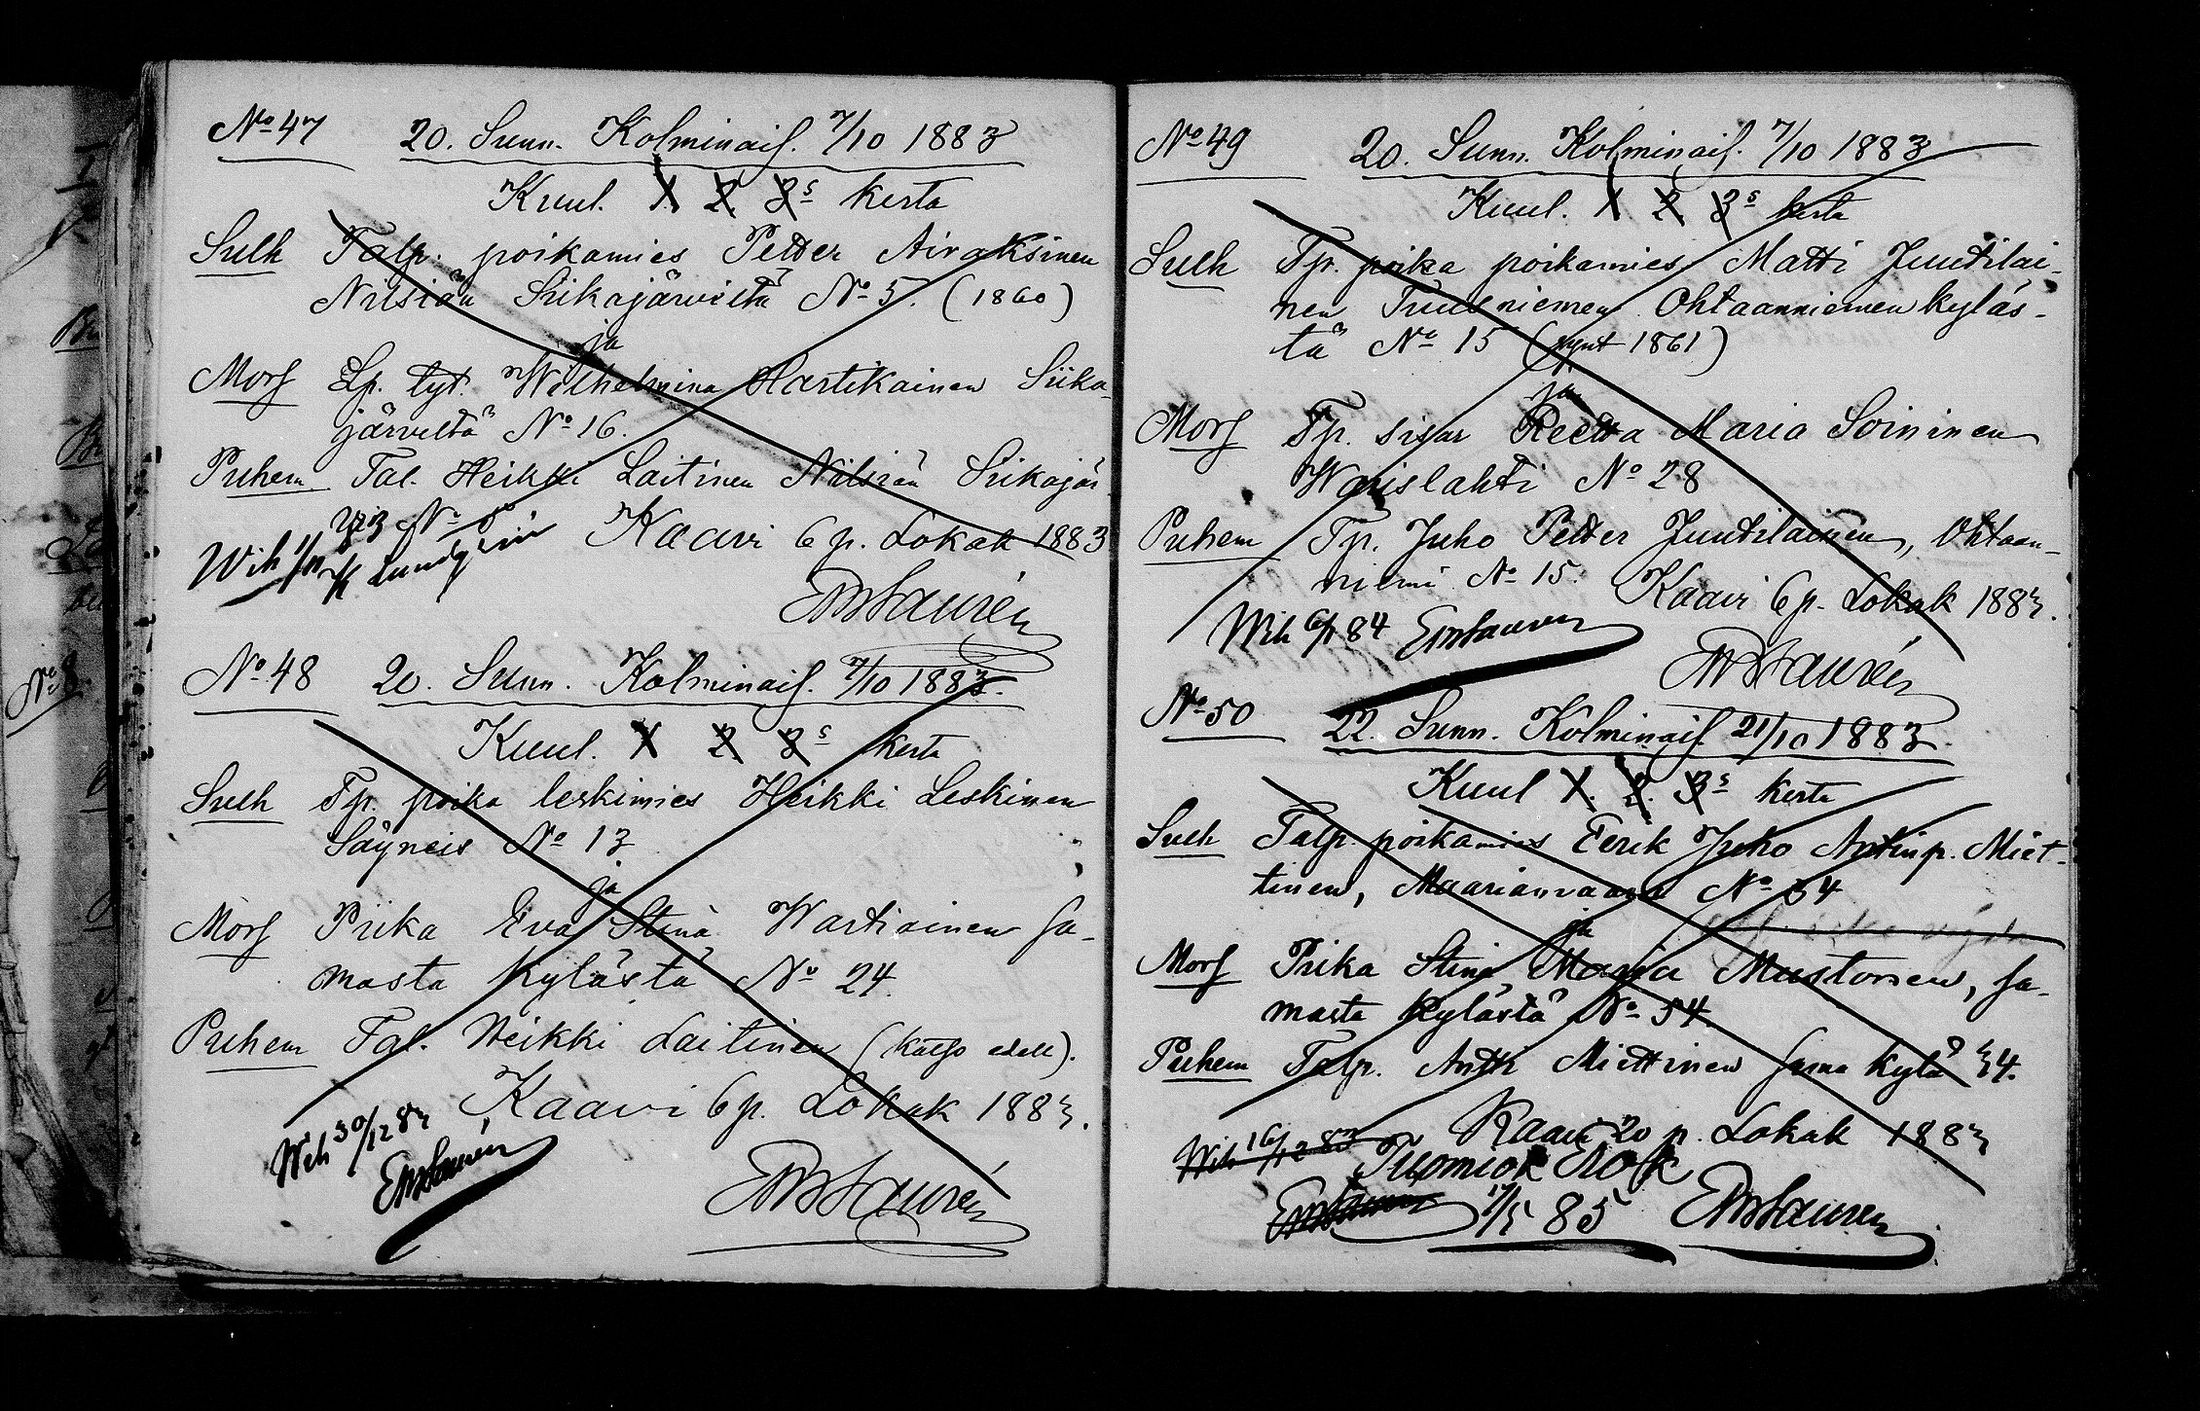 No 47 20. Sunn. Kolminais. 7/10 1883
Kuul. 1. 2. 3s kerta
Sulh Talp. poikamies Petter Airaksinen
Nilsiän Siikajärveltä No 5. (1860)
ja
Mors Lp. tyt. Wilhelmina Hartikainen Siika-
järveltä No 16.
Puhem Tal. Heikki Laitinen Nilsiän Siikajär.
No 5 Kaavi 6 p. Lokak 1883
Wih Lundgren
EWLaurén
No 48 20. Sunn. Kolminais. 7/10 1883.
Kuul. 1 2 3s kerta
Sulh Tp. poika leskimies Heikki Leskinen
Säyneis No 13
ja
Mors Piika Eva Stina Wartiainen sa-
masta kylästä No 24.
Puhem Tal. Heikki Laitinen (katso edell).
Kaavi 6 p. Lokak 1883.
Wih 30/12 83
EWLaurén
EWLaurén
No 49 20. Sunn. Kolminais. 7/10 1883
Kuul. 1 2 3s kerta
Sulh Tp. poika poikamies Matti Juutilai-
nen Tuusniemen Ohtaanniemen kyläs-
tä No 15 (synt 1861)
ja
Mors Tp. sisar Reetta Maria Soininen
Warislahti No 28
Puhem Tp. Juho Petter Juutilainen, Ohtaan-
niemi No 15. Kaavi 6 p. Lokak 1883.
Wih 6/1 84 EWLauren
EWLaurén
No 50 22. Sunn. Kolminais. 21/10 1883.
Kuul 1. 2. 3s kerta
Sulh Talp. poikamies Eerik Juho Antinp. Miet-
tinen, Maarianvaara No 34
ja
Mors Piika Stina Maria Mustonen, sa-
masta kylästä No 54.
Puhem Talp. Antti Miettinen sama kylä 34.
Kaavi 20 p. Lokak 1883
Wih 16/12 83 Tuomiok
EWLauren 17/5 85 EWLauren